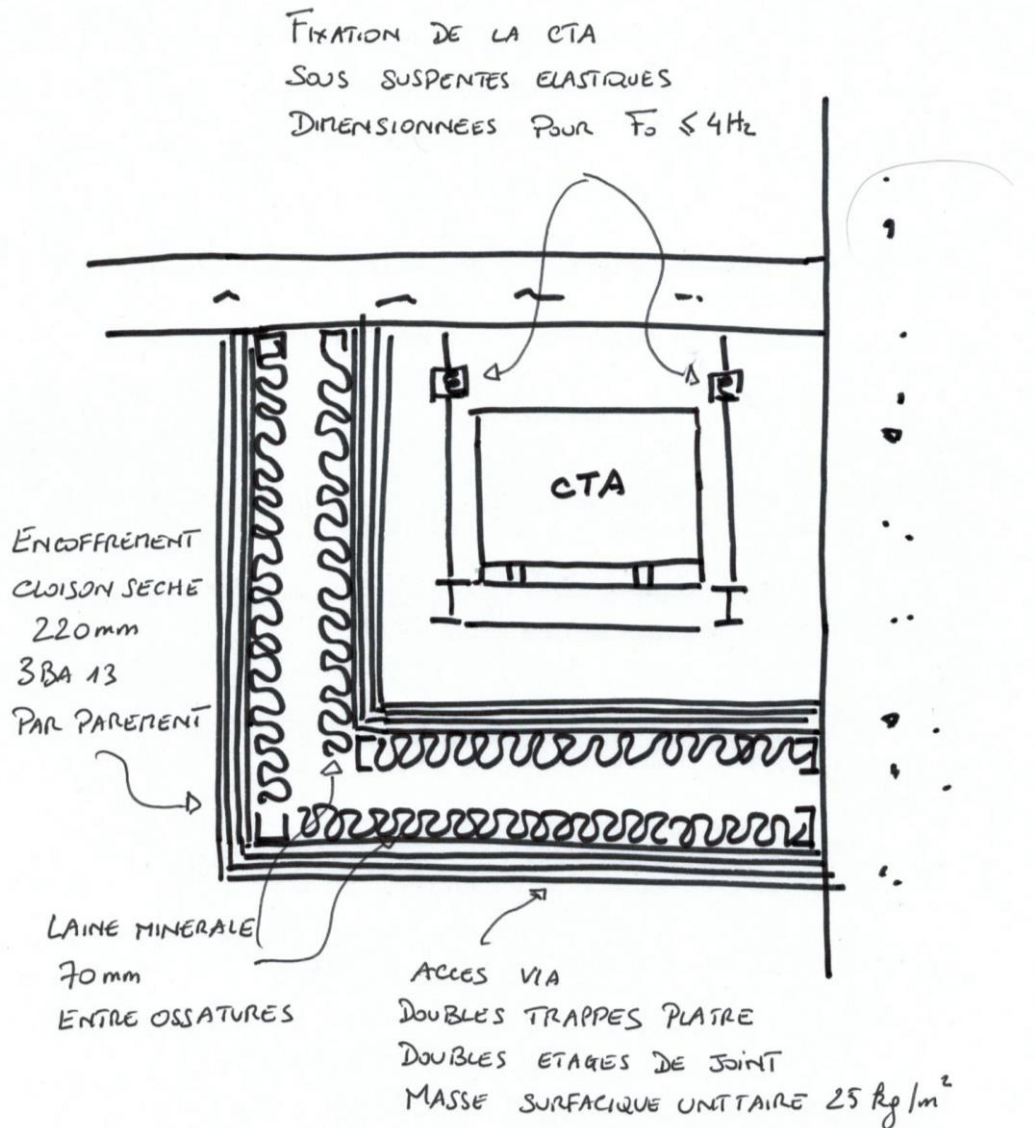 FIXATION DE LA CTA
SOUS SUSPENTES ELASTIQUES
DIMENSIONNEES POUR Fo ≤ 4Hz
CTA
ENCOFFREMENT
CLOISON SECHE
220mm
3BA 13
PAR PAREMENT
LAINE MINERALE
70mm
ENTRE OSSATURES
ACCES VIA
DOUBLES TRAPPES PLATRE
DOUBLES ETAGES DE JOINT
MASSE SURFACIQUE UNITTAIRE 25 kg/m²